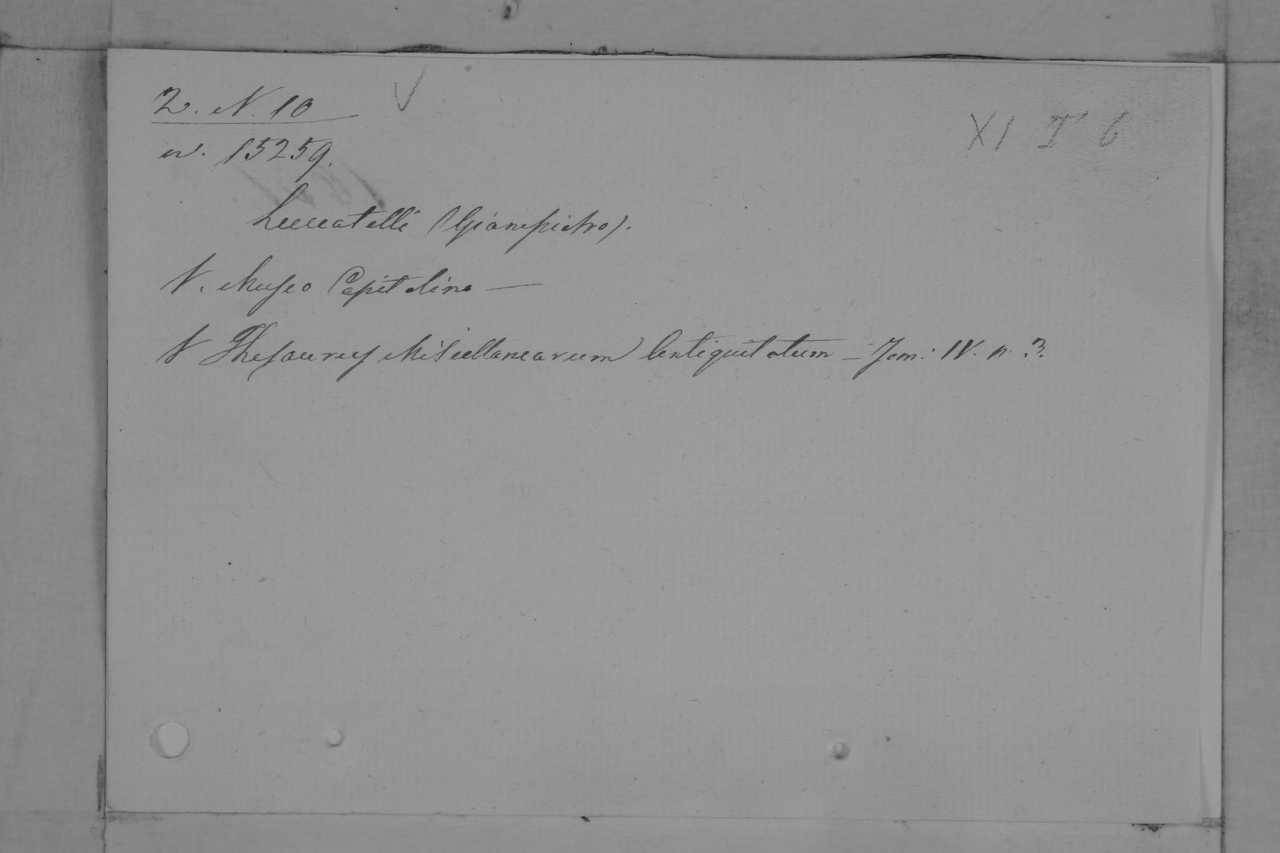 2. N. 10 V
n. 15259.
XI I 6
Luccatelli (Gianpietro).
V. Museo Capitolino —
V Thesaurus Miscellanearum Antiquitatum — Tom: IV. n. 3.